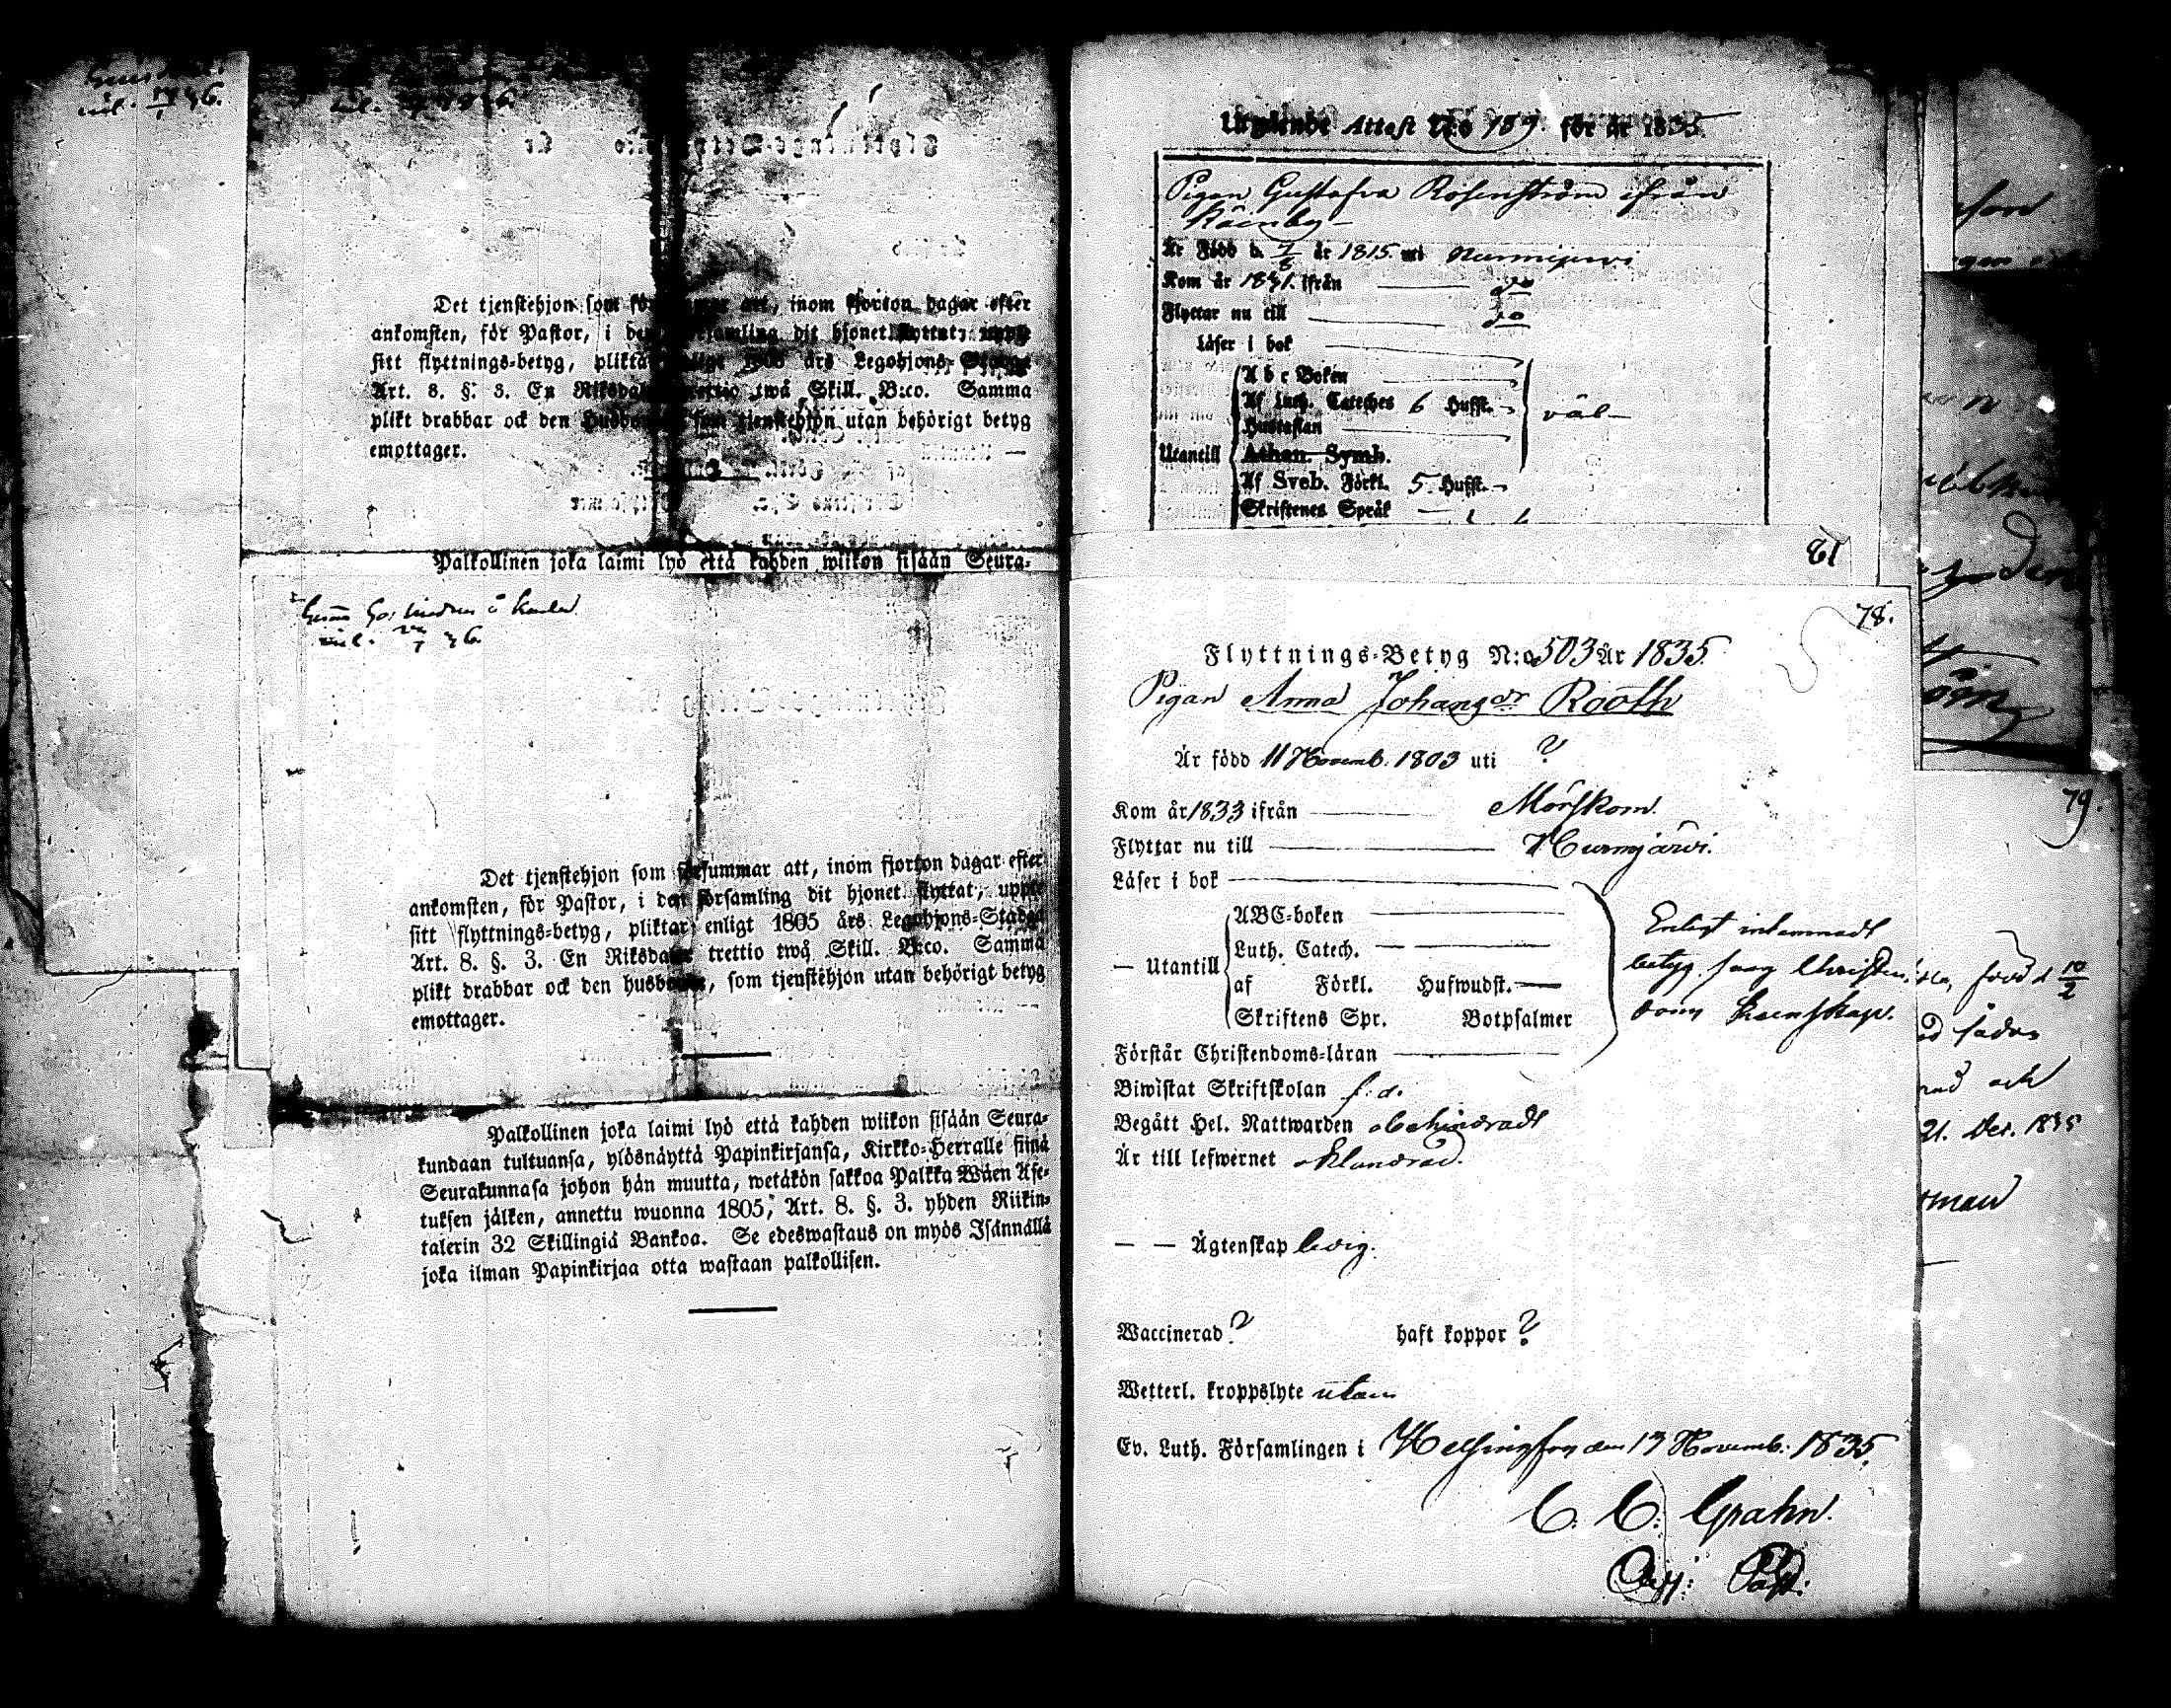 mil. 1/7 36.
mil. 1/7 1836.
Det tjenstehjon som att, inom fjorton dagar efter
ankomsten, för Pastor, i den församling dit hjonet flyttat, uppte
sitt flyttnings-betyg, pliktar enligt 1805 års Legohjons-Stadga
Art. 8. §. 3. En Riksdaler trettio twå Skill. B:co. Samma
plikt drabbar ock den husbonde, som tjenstehjon utan behörigt betyg
emottager.
Palkollinen joka laimi lyö että kahden wiikon sisään Seura-
mil. 36.
Det tjenstehjon som försummar att, inom fjorton dagar efter
ankomsten, för Pastor, i den församling dit hjonet flyttat, uppte
sitt flyttnings-betyg, pliktar enligt 1805 års Legohjons-Stadga
Art. 8. §. 3. En Riksdaler trettio twå Skill. B:co. Samma
plikt drabbar ock den husbonde, som tjenstehjon utan behörigt betyg
emottager.
Palkollinen joka laimi lyö että kahden wiikon sisään Seura-
kundaan tultuansa, ylösnäyttä Papinkirjansa, Kirkko-Herralle siinä
Seurakunnasa johon hän muutta, wetäkön sakkoa Palkka Wäen Ase-
tuksen jälken, annettu wuonna 1805, Art. 8. §. 3. yhden Riikin-
talerin 32 Skillingiä Bankoa. Se edeswastaus on myös Isännällä
joka ilman Papinkirjaa otta wastaan palkollisen.
Utgående Attest N:o 189. för år 1835.
Pigan Gustafva Rosenström ifrån
Är Född d. 7/8 år 1815. uti Nurmijervi
Kom år 1831. ifrån do
Flyttar nu till do
läser i bok
A b c Boken
Af Luth. Cateches 6 Hufst.
Hustaflan
väl
Utantill Athan. Symb.
Af Sveb. Förkl. 5 Hufst.
Skriftenes Språk
81
78.
Flyttnings-Betyg N:o 503 År 1835.
Pigan Anna Johansdr Rooth
Är född 11 Novemb. 1803 uti ?
Kom år 1833 ifrån Mörskom.
Flyttar nu till Nurmjärvi.
Läser i bok
ABC-boken
Luth. Catech.
— Utantill
af Förkl. Hufwudst.
Skriftens Spr. Botpsalmer
Enligt inlemnadt
betyg svag Christen-
doms kunskap.
Förstår Christendoms-läran
Biwistat Skriftskolan f. d.
Begått Hel. Nattwarden obehindradt
Är till lefwernet oklandrad.
— — Ägtenskap ledig.
Waccinerad ? haft koppor ?
Wetterl. kroppslyte utan
Ev. Luth. Församlingen i Helsingfors den 13 Novemb: 1835.
C. C. Grahn.
Adj: Past:
79.
född d 10/2
och
21. Dec. 1835